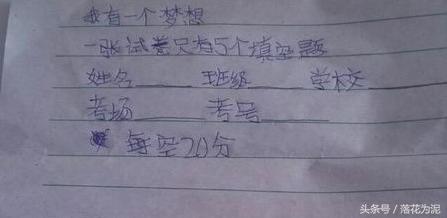 我有一个梦想
一张试卷只有5个填空题
姓名____ 班级____ 学校____
考场____ 考号____
每空20分
头条号/落花为泥